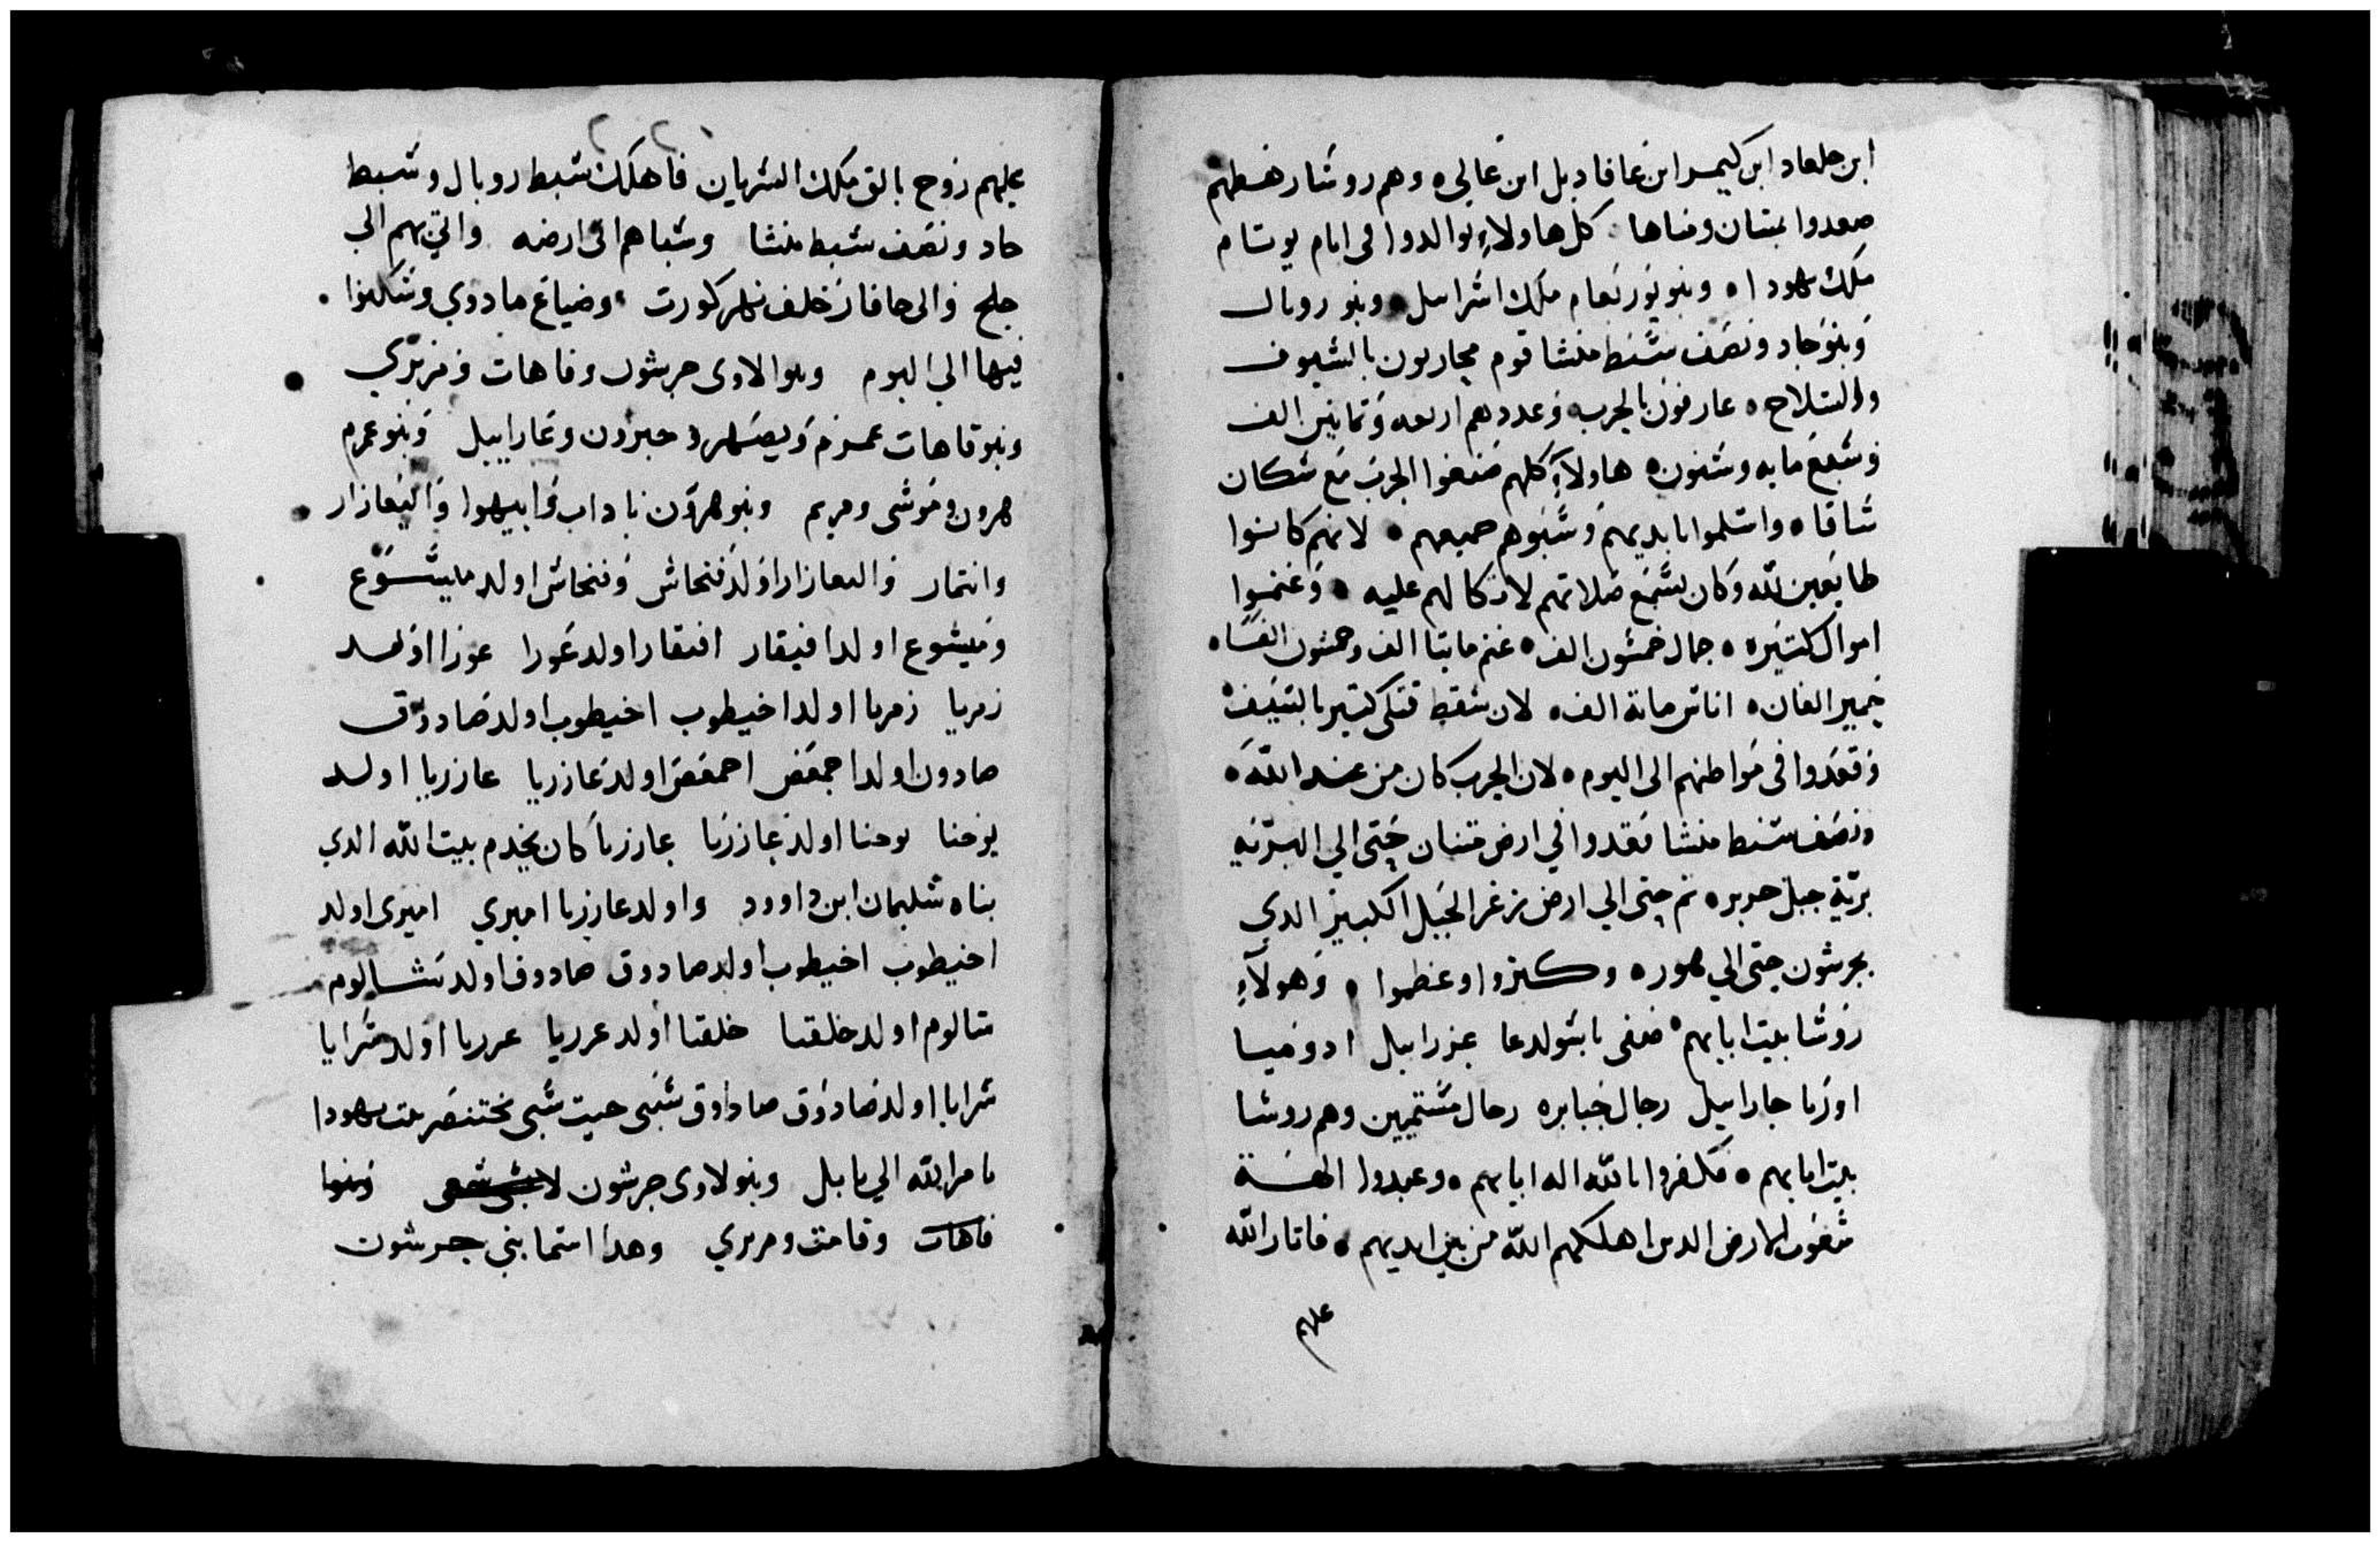 ابن جلعاد ابن كيمر ابن عافاد بل ابن عالى ه وهم روشا رهطهم
صعدوا بمتنان ومناها كل هاولاء توالدوا فى ايام يوتام
ملك يهودا ه وبنو يوربعام ملك اشراييل ه وبنو روبال
وبنو جاد ونصف شبط منشا قوم يحاربون بالشيوف
والسلاح ه عارفون بالحرب وعددهم اربعه وتمانين الف
وشبع مايه وشتون ه هاولاء كلهم صنعوا الحرب مع شكان
شاقا ه واشلموا بايديهم وشبوهم جميعهم ه لانهم كانوا
طايعين لله وكان يشمع صلاتهم لاتكالهم عليه ه وغنموا
اموال كتيره ه جمال خمشون الف ه غنم مايتا الف وخمشون الفا ه
حمير الفان ه اناش ماية الف ه لان شقط قتلى كتير بالشيف ه
وقعدوا فى مواطنهم الى اليوم ه لان الحرب كان من عند الله ه
ونصف شبط منشا قعدوا في ارض متنان حتى الي البريه
برية جبل حوبره تم حتى الي ارض نزغر الجبل الكبير الدي
بحرشون حتى الي هوره وكبروا وعظموا ه وهولاء
روشا بيت ابايهم ه صفى باشولدعا عزراييل ادونيا
اوزيا جاراييل رجال جبابره رجال مشتميين وهم روشا
بيت ابايهم ه فكفروا بالله اله ابايهم ه وعبدوا الهة
شعوب الارض الدين اهلكهم الله من بين ايديهم ه فاتار الله
عليهم
عليهم روح بالق ملك الشريان فاهلك شبط روبال وشبط
جاد ونصف شبط منشا وشباهم الى ارضه واتي بهم الى
جلح والى جافار خلف نهر كورت ه وضياع مادوي وشكنوا
فيها الى اليوم وبنوا لاوى جرشون وقاهات ومرري
وبنو قاهات عمرم ويصهر وحبرون وعاراييل وبنو عمرم
هرون وموشى ومريم وبنو هرون ناداب وابيهوا واليعازار
وانتمار واليعازار اولد فنحاش وفنحاش اولد ميشوع
وميشوع اولد افيقار افيقار اولد عورا عوزا اولد
زمريا زمريا اولد اخيطوب اخيطوب اولد صادوق
صادوق اولد احمعص احمعص اولد عازريا عازريا اولد
يوحنا يوحنا اولد عازريا عازريا كان يخدم بيت الله الدي
بناه شليمان ابن داوود واولد عازريا اميري اميرى اولد
اخيطوب اخيطوب اولد صادوق صادوق اولد شالوم
شالوم اولد خلقيا خلقيا اولد عزريا عزريا اولد شرايا
شرايا اولد صادوق صادوق شبى حيت شبى بختنصر بيت يهودا
بامر الله الي بابل وبنو لاوى جرشون وبنوا
قاهات وقاهت ومرري وهدا اسما بني جرشون